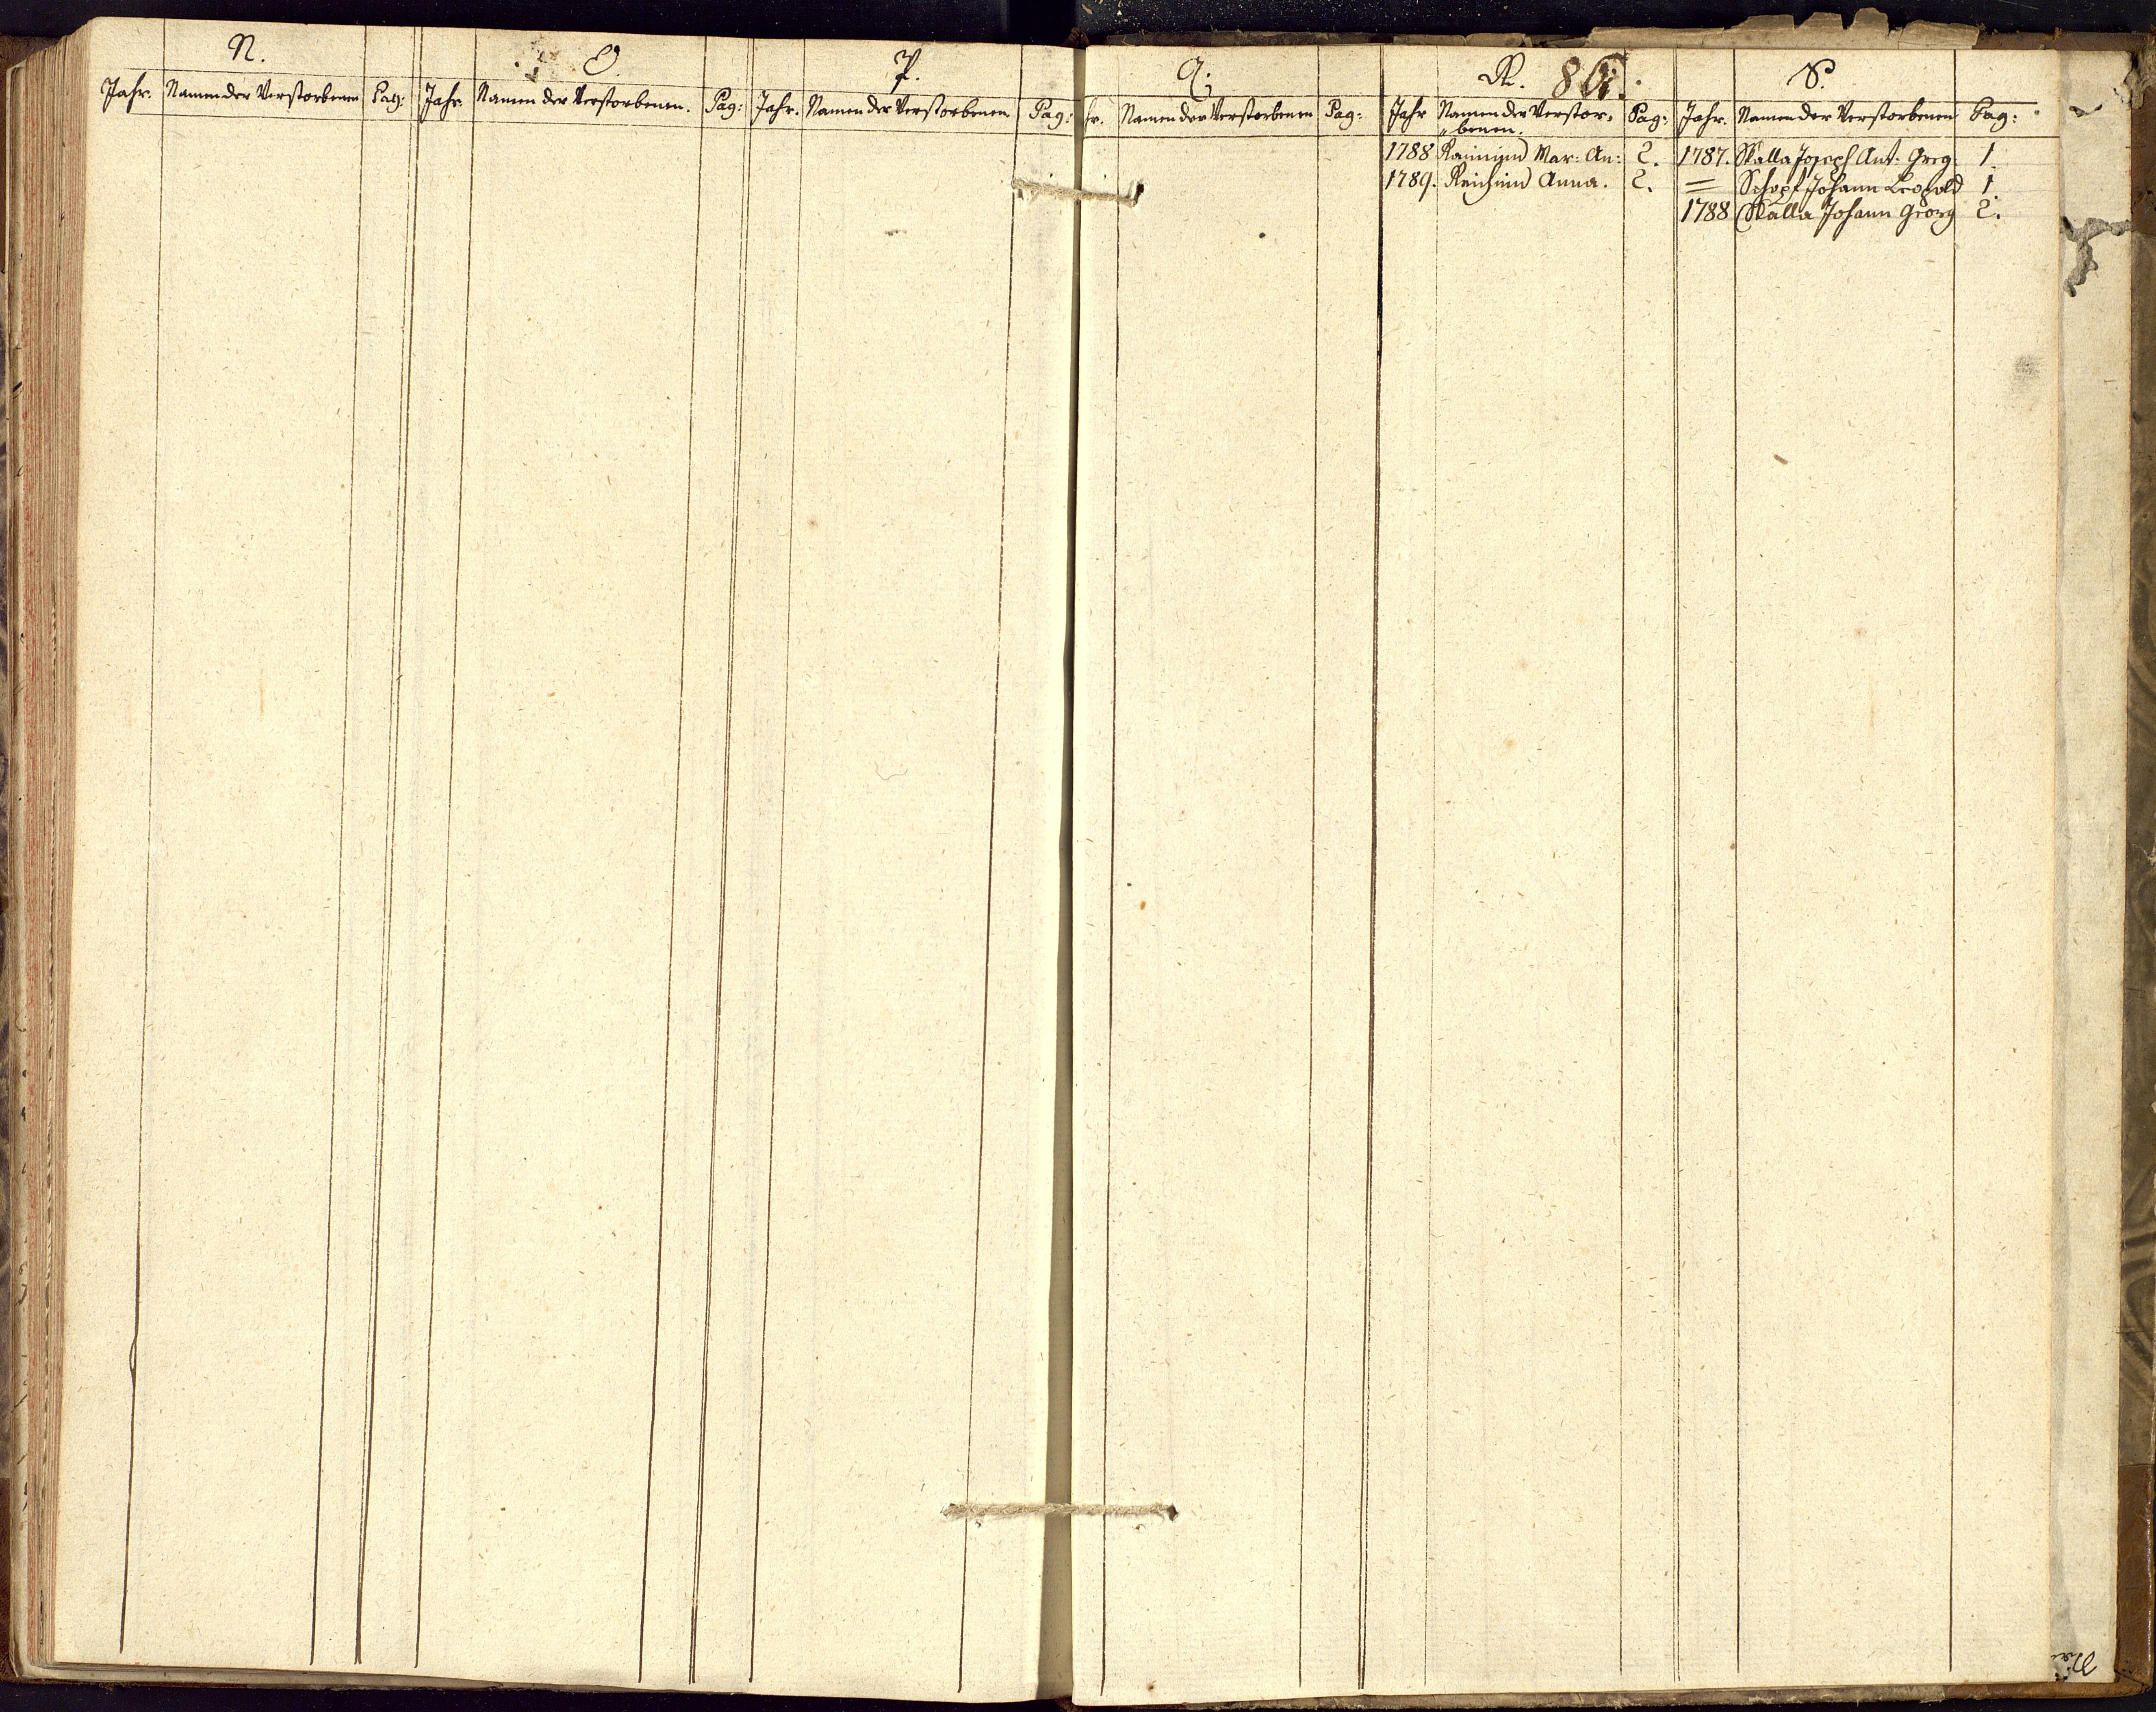 N.
Jahr. Namen der Verstorbenen Pag:
O.
Jahr. Namen der Verstorbenen. Pag:
P.
Jahr. Namen der Verstorbenen Pag:
Q.
hr. Namen der Verstorbenen Pag:
R. 86.
Jahr Namen der Verstor=
=benen. Pag:
1788 Raimund Mar: An: 2.
1789. Anna. 2.
S.
Jahr. Namen der Verstorbenen Pag:
1787. Skalla Joseph Ant: Greg. 1.
= Schopf Johann Leopold 1.
1788 Skalla Johann Georg 2.